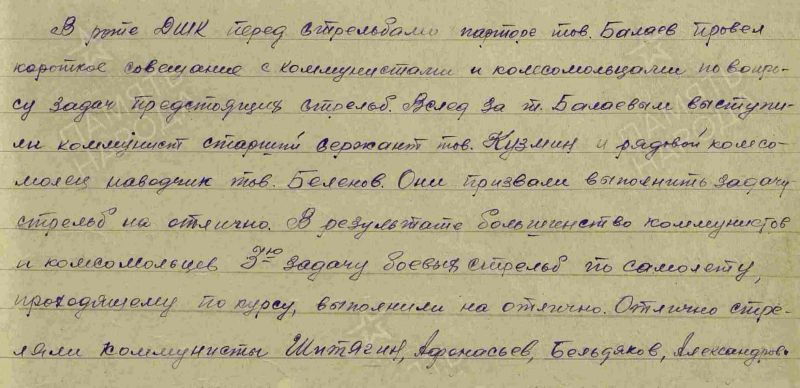 В роте ДШК перед стрельбами парторг тов. Балаев провел
короткое совещание с коммунистами и комсомольцами по вопро-
су задач предстоящих стрельб. Вслед за т. Балаевым выступи-
ли коммунист старший сержант тов. Кузмин и рядовой комсо-
молец наводчик тов. Беленов. Они призвали выполнить задачу
стрельб на отлично. В результате большинство коммунистов
и комсомольцев 3-ю задачу боевых стрельб по самолету,
проходящему по курсу, выполнили на отлично. Отлично стре-
ляли коммунисты Шитягин, Афонасьев, Бельдяков, Александров